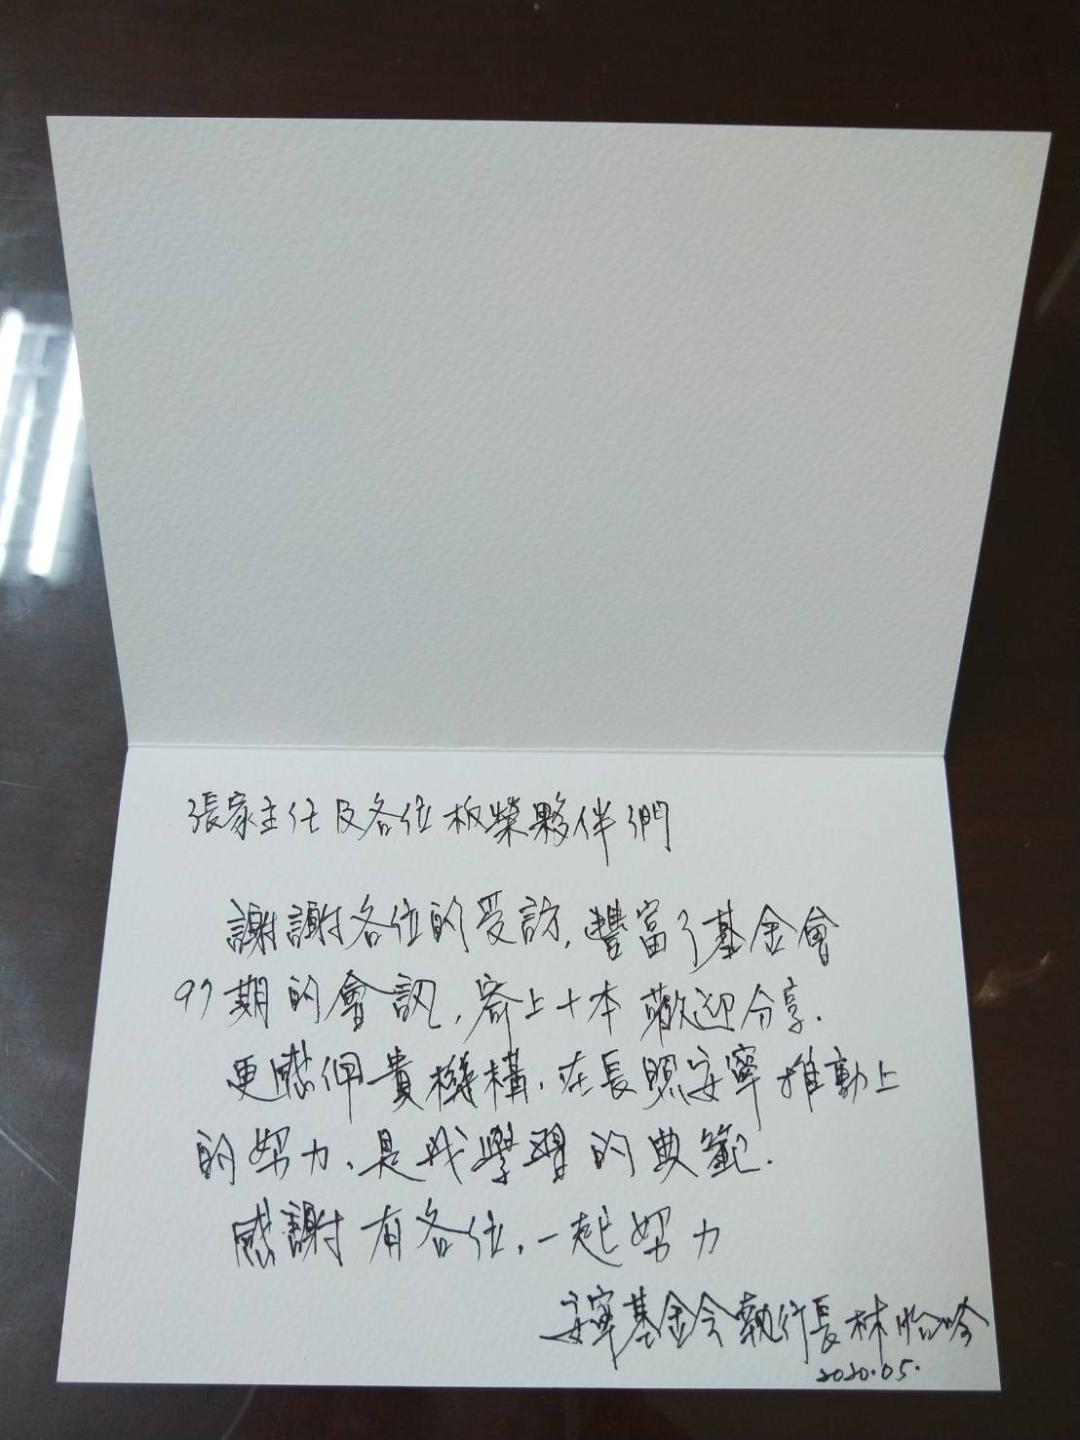 張家主任及各位板榮夥伴們
謝謝各位的受訪,豐富了基金會
97期的會訊,寄上十本歡迎分享.
更感佩貴機構,在長照安寧推動上
的努力、是我學習的典範.
感謝有各位,一起努力
安寧基金会執行長林怡吟
2020.05.